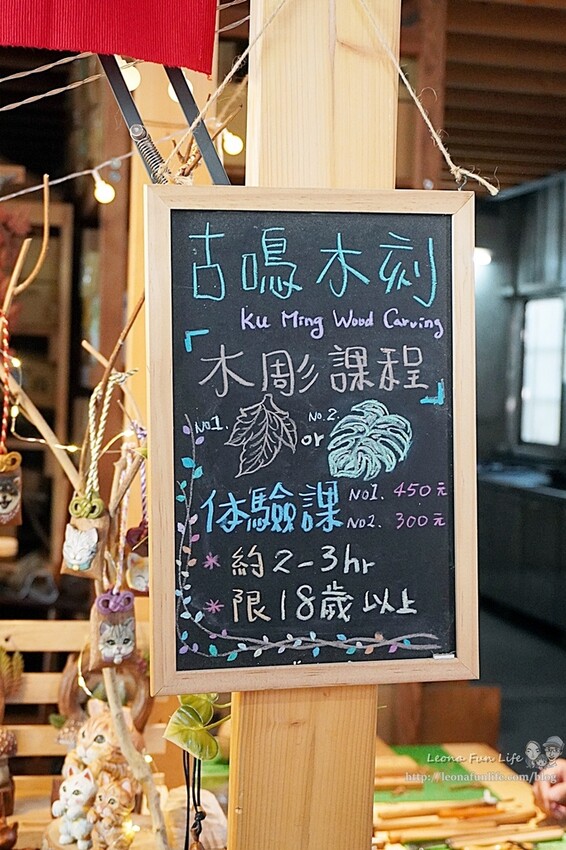 古鳴木刻
Ku Ming Wood Carving
「木彫課程」
No1. or No.2.
体驗課 No1. 450元
No2. 300元
* 約2-3hr
* 限18歲以上
Leona Fun Life
http://leonafunlife.com/blog